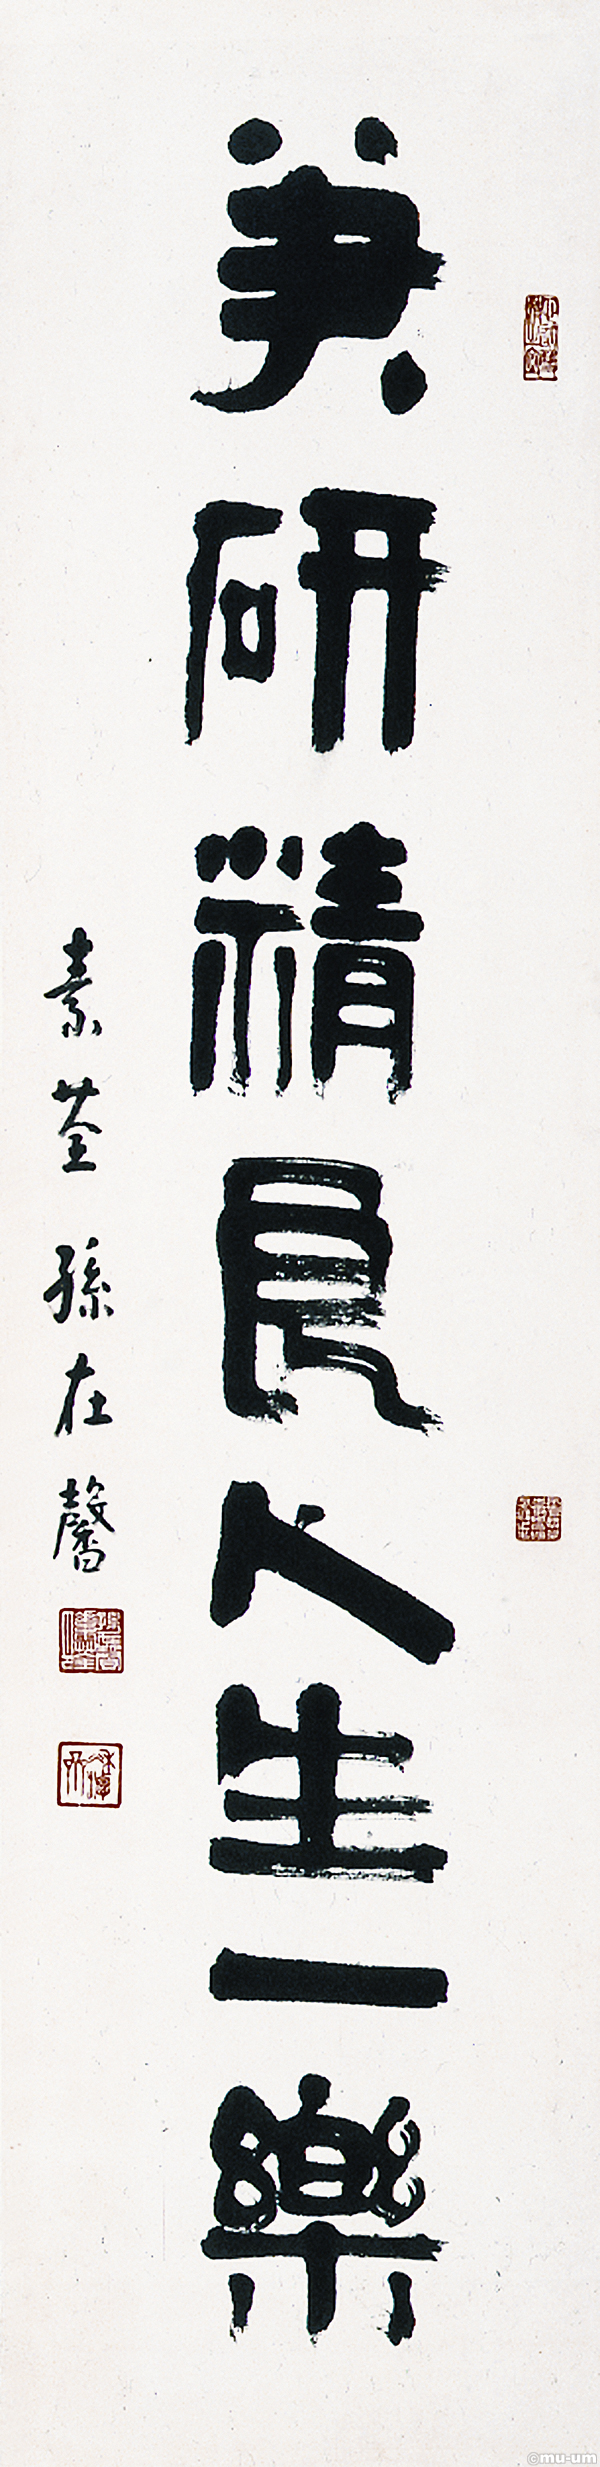 筆研精良人生一樂
素荃 孫在馨
©mu-um